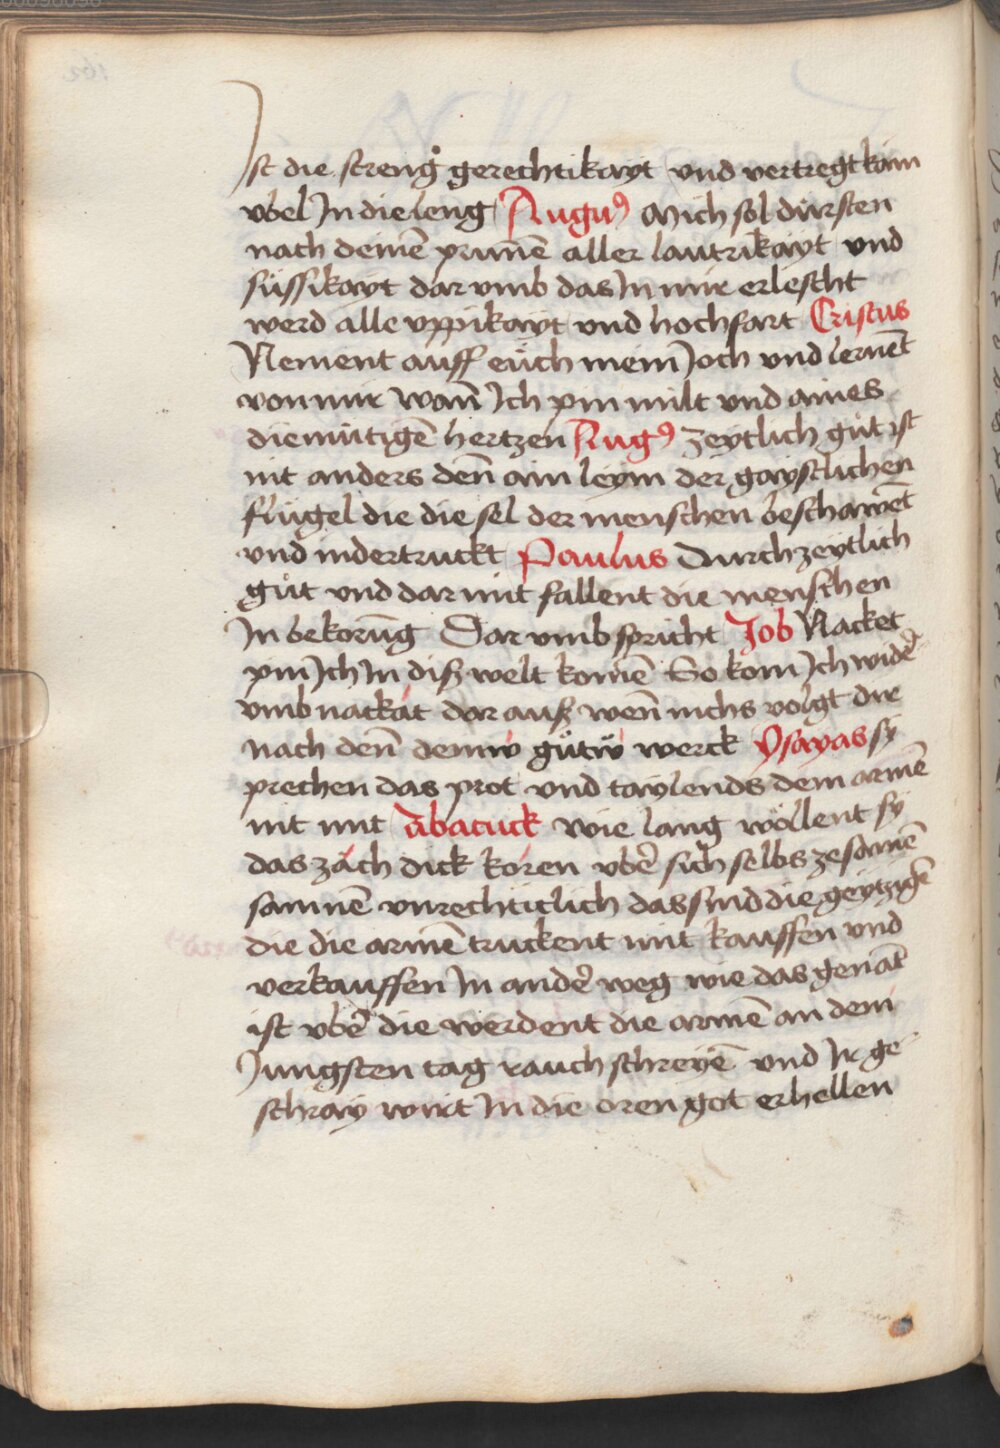 Ist die streng gerechtikayt vnd vertregt kain
vbel In die leng Augu⁹ Mich sol dürsten
nach deinē prunnē aller lautrikayt vnd
süssikayt dar vmb das In mir erlescht
werd alle vppikayt vnd hochfart Cristus
Nement auff eüch mein Joch vnd lernēt
von mir wann̄ Ich pin milt vnd aines
diemütigē hertzen Aug⁹ Zeytlich gůt ist
nit anders denn̄ ain leym der gaystlichen
flügel die die sel der menschen beschawēt
vnd indertruckt Paulus Durch zeytlich
gůt vnd dar mit fallent die menschen
In bekorūg Dar vmb spricht Job Nacket
pin Ich In disz welt komē So kom Ich wider̄
vmb nackat dar ausz wenn̄ nichs volgt dir
nach denn̄ deinw gůtw werck ysayas sy
prechen das prot vnd taylends dem armē
nit mit Abacuck wie lang wöllent sy
das zäch dick koren vber̄ sich selbs zesamē
samnē vnrechticlich das sind die geytzigē
die die armē truckent mit kauffen vnd
verkauffen In ander̄ weg wie das genāt
ist vber̄ die werdent die armē an dem
Jungsten tag rauch schreyē vnd Ir ge
schray wirt In die oren got erhellen